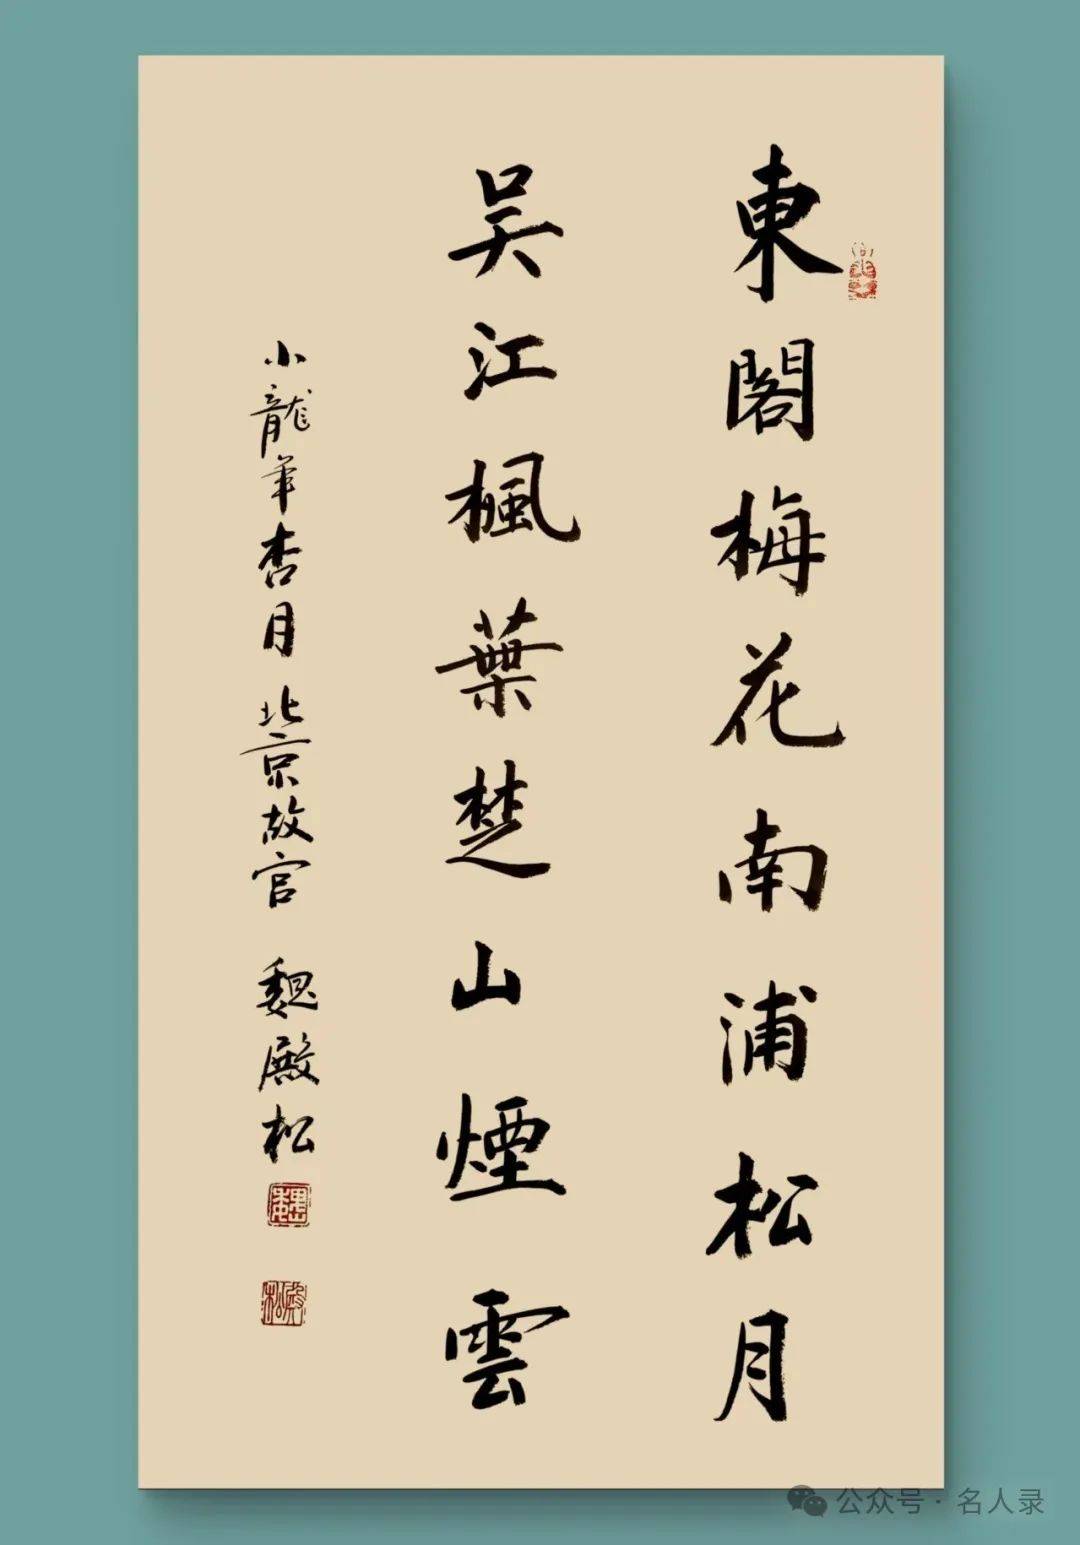 東閣梅花南浦松月
吴江楓葉楚山煙雲
小龍年杏月 北京故宫 魏殿松
魏
殿松
公众号 · 名人录